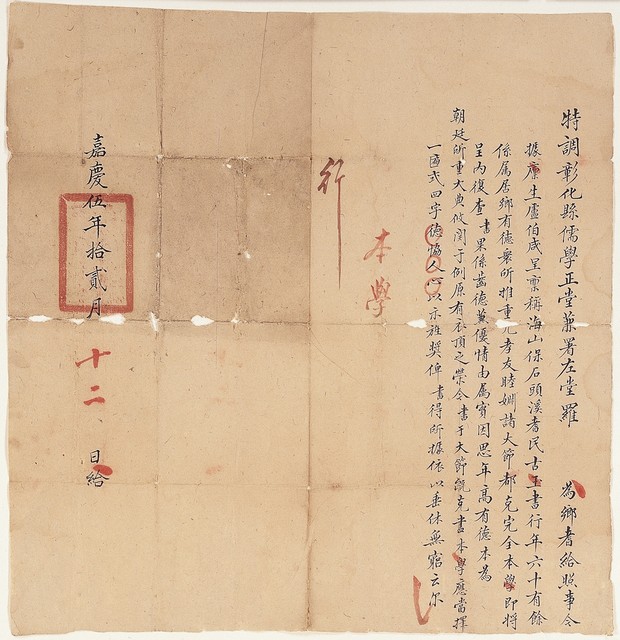 特調彰化縣儒學正堂兼署左堂羅 為鄉耆給照事令
據廩生盧伯咸呈稟稱海山保石頭溪耆民古玉書行年六十有餘
係属居鄉有德衆所推重凡孝友睦婣諸大節都克完全本學即將
呈內復查書果係齒德兼優情由属實因思年高有德本為
朝廷所重大典攸関于例原有衣頂之榮令書于大節能克書本學應當擇
一匾式四字德協人心以示旌奬俾書得所據依以垂休無窮云尔
行
本學
嘉慶伍年拾貳月 十二、日給